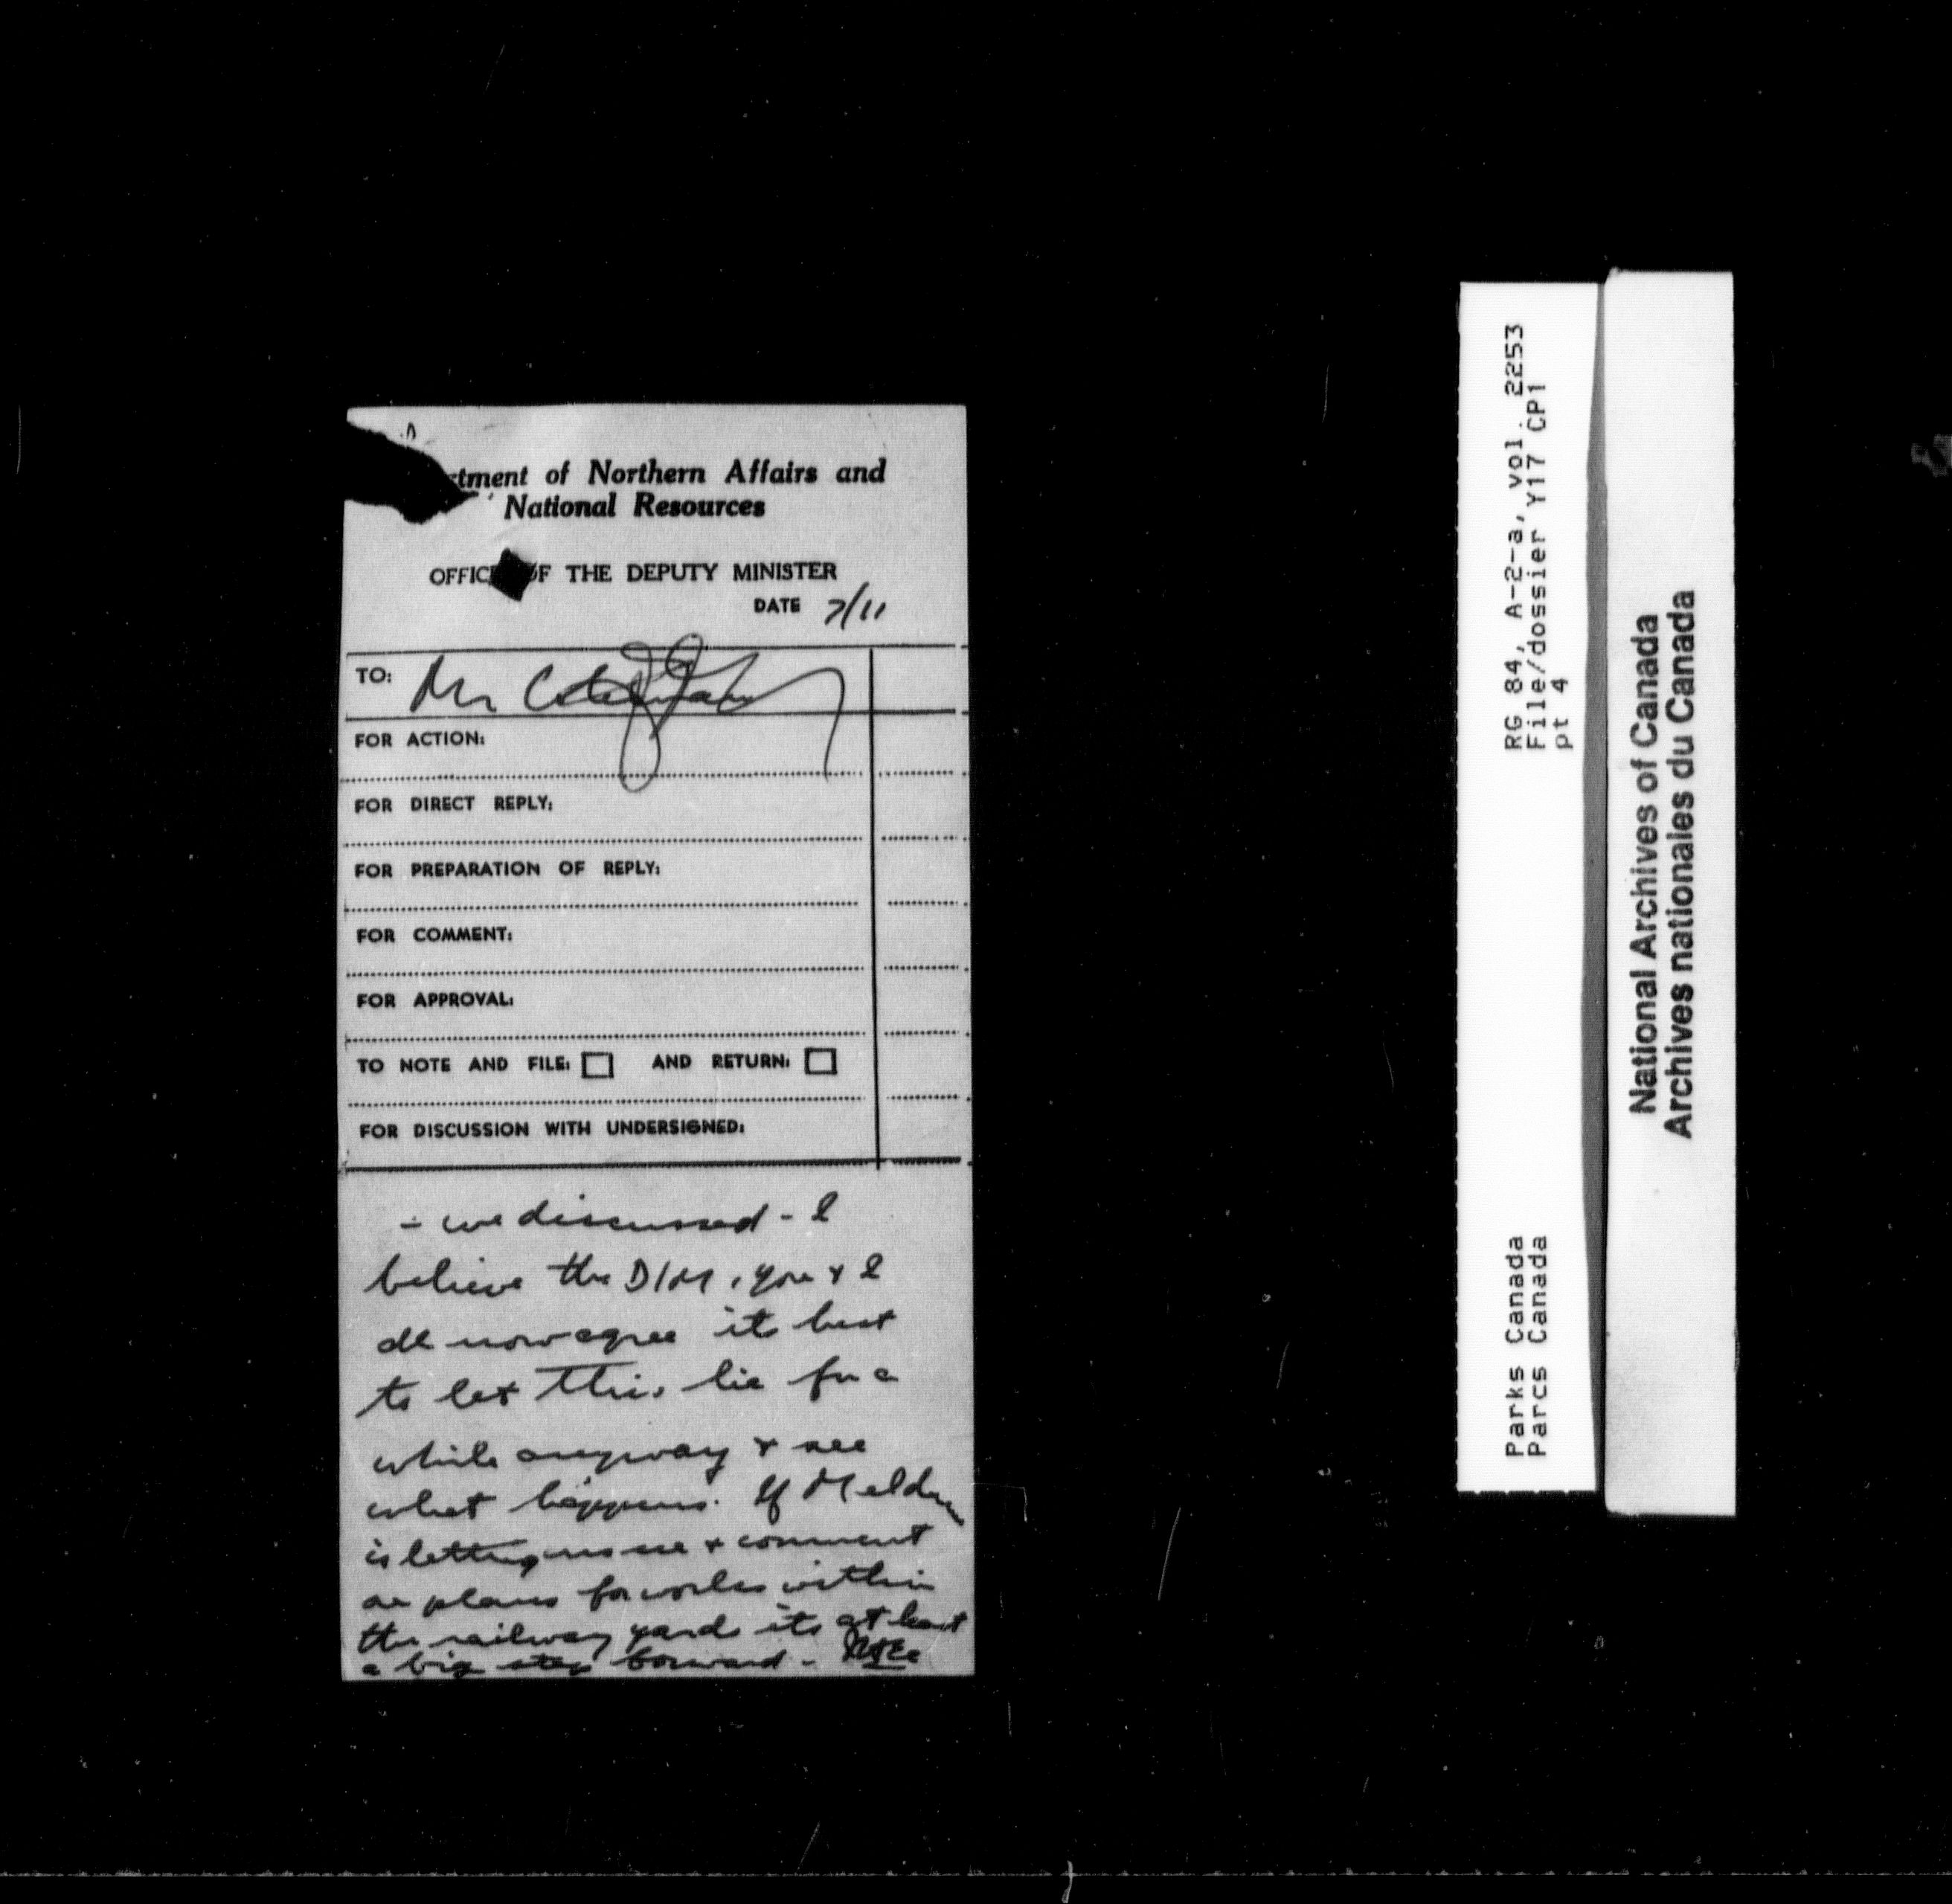 rtment of Northern Affairs and
National Resources
OFFIC OF THE DEPUTY MINISTER
DATE 7/11
TO: Mr
FOR ACTION:
FOR DIRECT REPLY:
FOR PREPARATION OF REPLY:
FOR COMMENT:
FOR APPROVAL:
TO NOTE AND FILE: AND RETURN:
FOR DISCUSSION WITH UNDERSIGNED:
- we discussed - I
believe the D/M, you & I
all now agree its best
to let this lie for a
while anyway & see
what happens. If Meldrum
is letting us see & comment
on plans for works within
the railway yards its at least
a big step forward -
RG 84, A-2-a, vol. 2253
File/dossier Y17 CP1
pt 4
Parks Canada
Parcs Canada
National Archives of Canada
Archives nationales du Canada